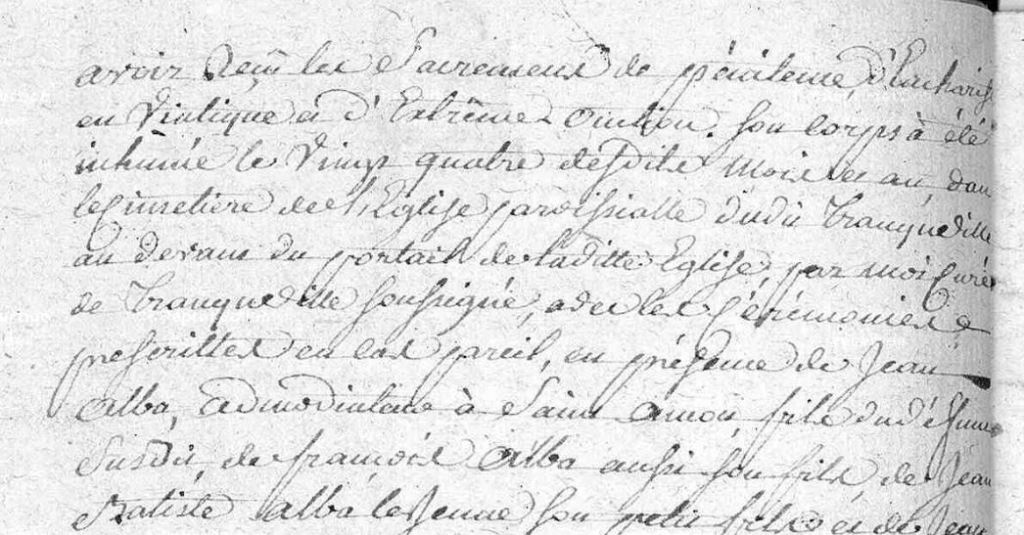 avoir Reçu les Sacremens de pénitence, d'Eucharis
en Viatique et d'Extrême Onction. Son corps à été
inhumé le Vingt quatre desdits Mois et an, dans
le Cimetiere de l'Eglise paroissialle dudit Tranqueville
au devant du portail de laditte Eglise, par moi Curé
de Tranqueville soussigné, avec les Cérémonies
prescrittes en cas pareil, en présence de Jean
Alba, admodiataire à Saint Amon, fils du défunt
Susdit, de françois Alba aussi son fils, de Jean
Batiste Alba le Jeune son petit fils et de Jean